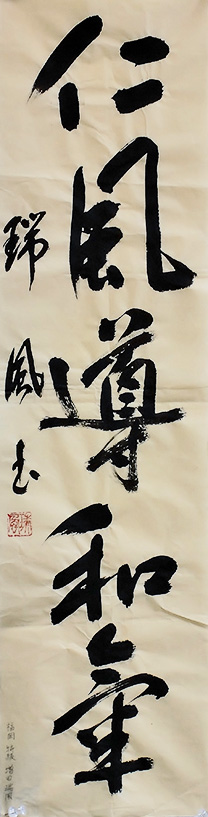 仁風導和氣
瑞風書